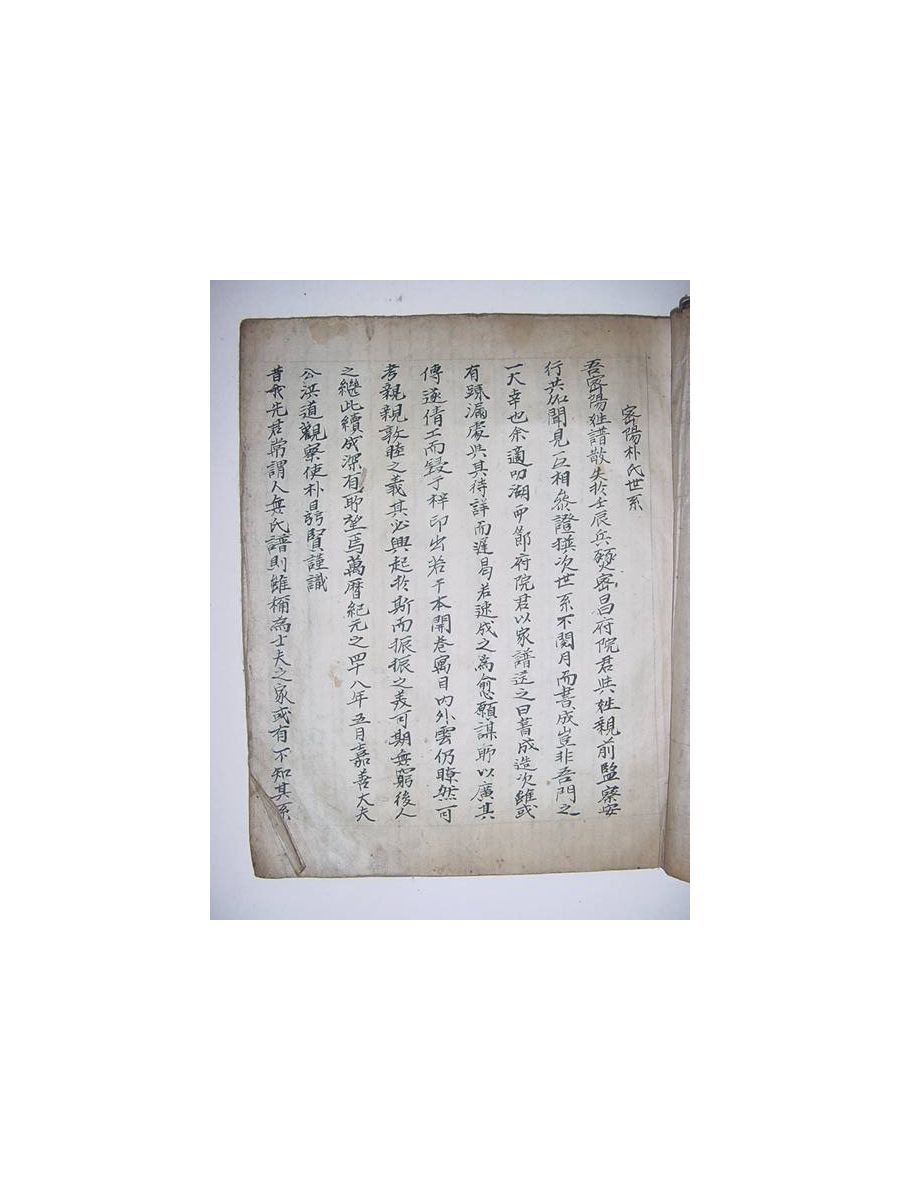 密陽朴氏世系
吾密陽姓譜散失於壬辰兵燹密昌府院君與姓親前監察安
行共加聞見互相叅證撰次世系不閱月而書成豈非吾門之
一大幸也余適叨湖甲節府院君以家譜送之曰書成造次雖或
有踈漏處與其待詳而遲曷若速成之為愈願謀所以廣其
傳遂倩工而鋟于梓印出若干本開巻寓目內外雲仍瞭然可
考親親敦睦之義其必興起於斯而振振之美可期無窮後人
之繼此續成深有所望焉萬曆紀元之四十八年五月嘉善大夫
公洪道觀察使朴賢謹識
昔我先君常謂人無氏譜則雖稱為士夫之家或有不知其系